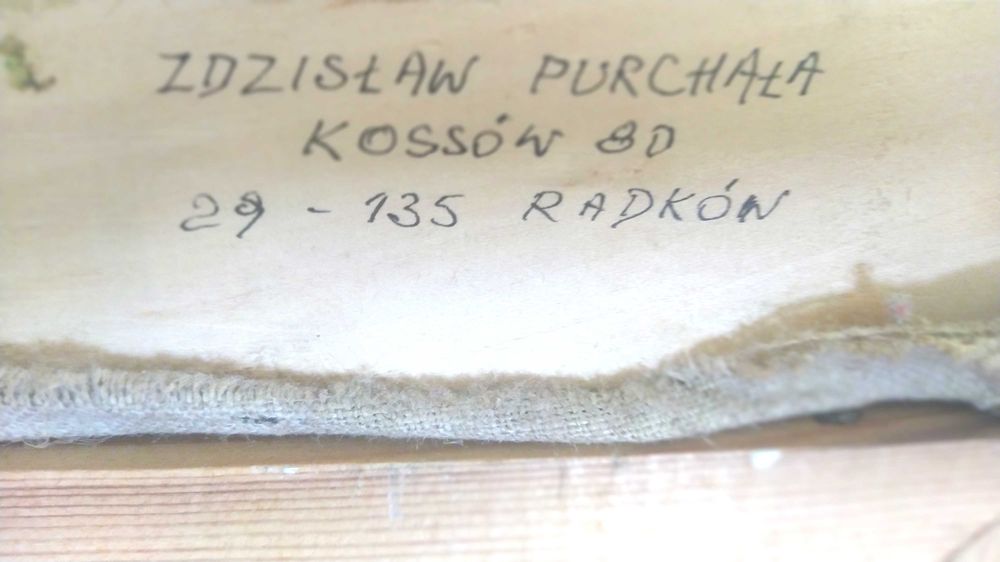 ZDZISŁAW PURCHAŁA
KOSSÓW 8D
29-135 RADKÓW